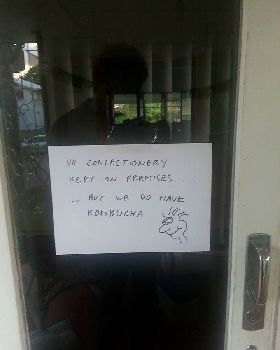 NO CONFECTIONERY
KEPT ON PREMISES ...
... BUT WE DO HAVE
KOMBUCHA